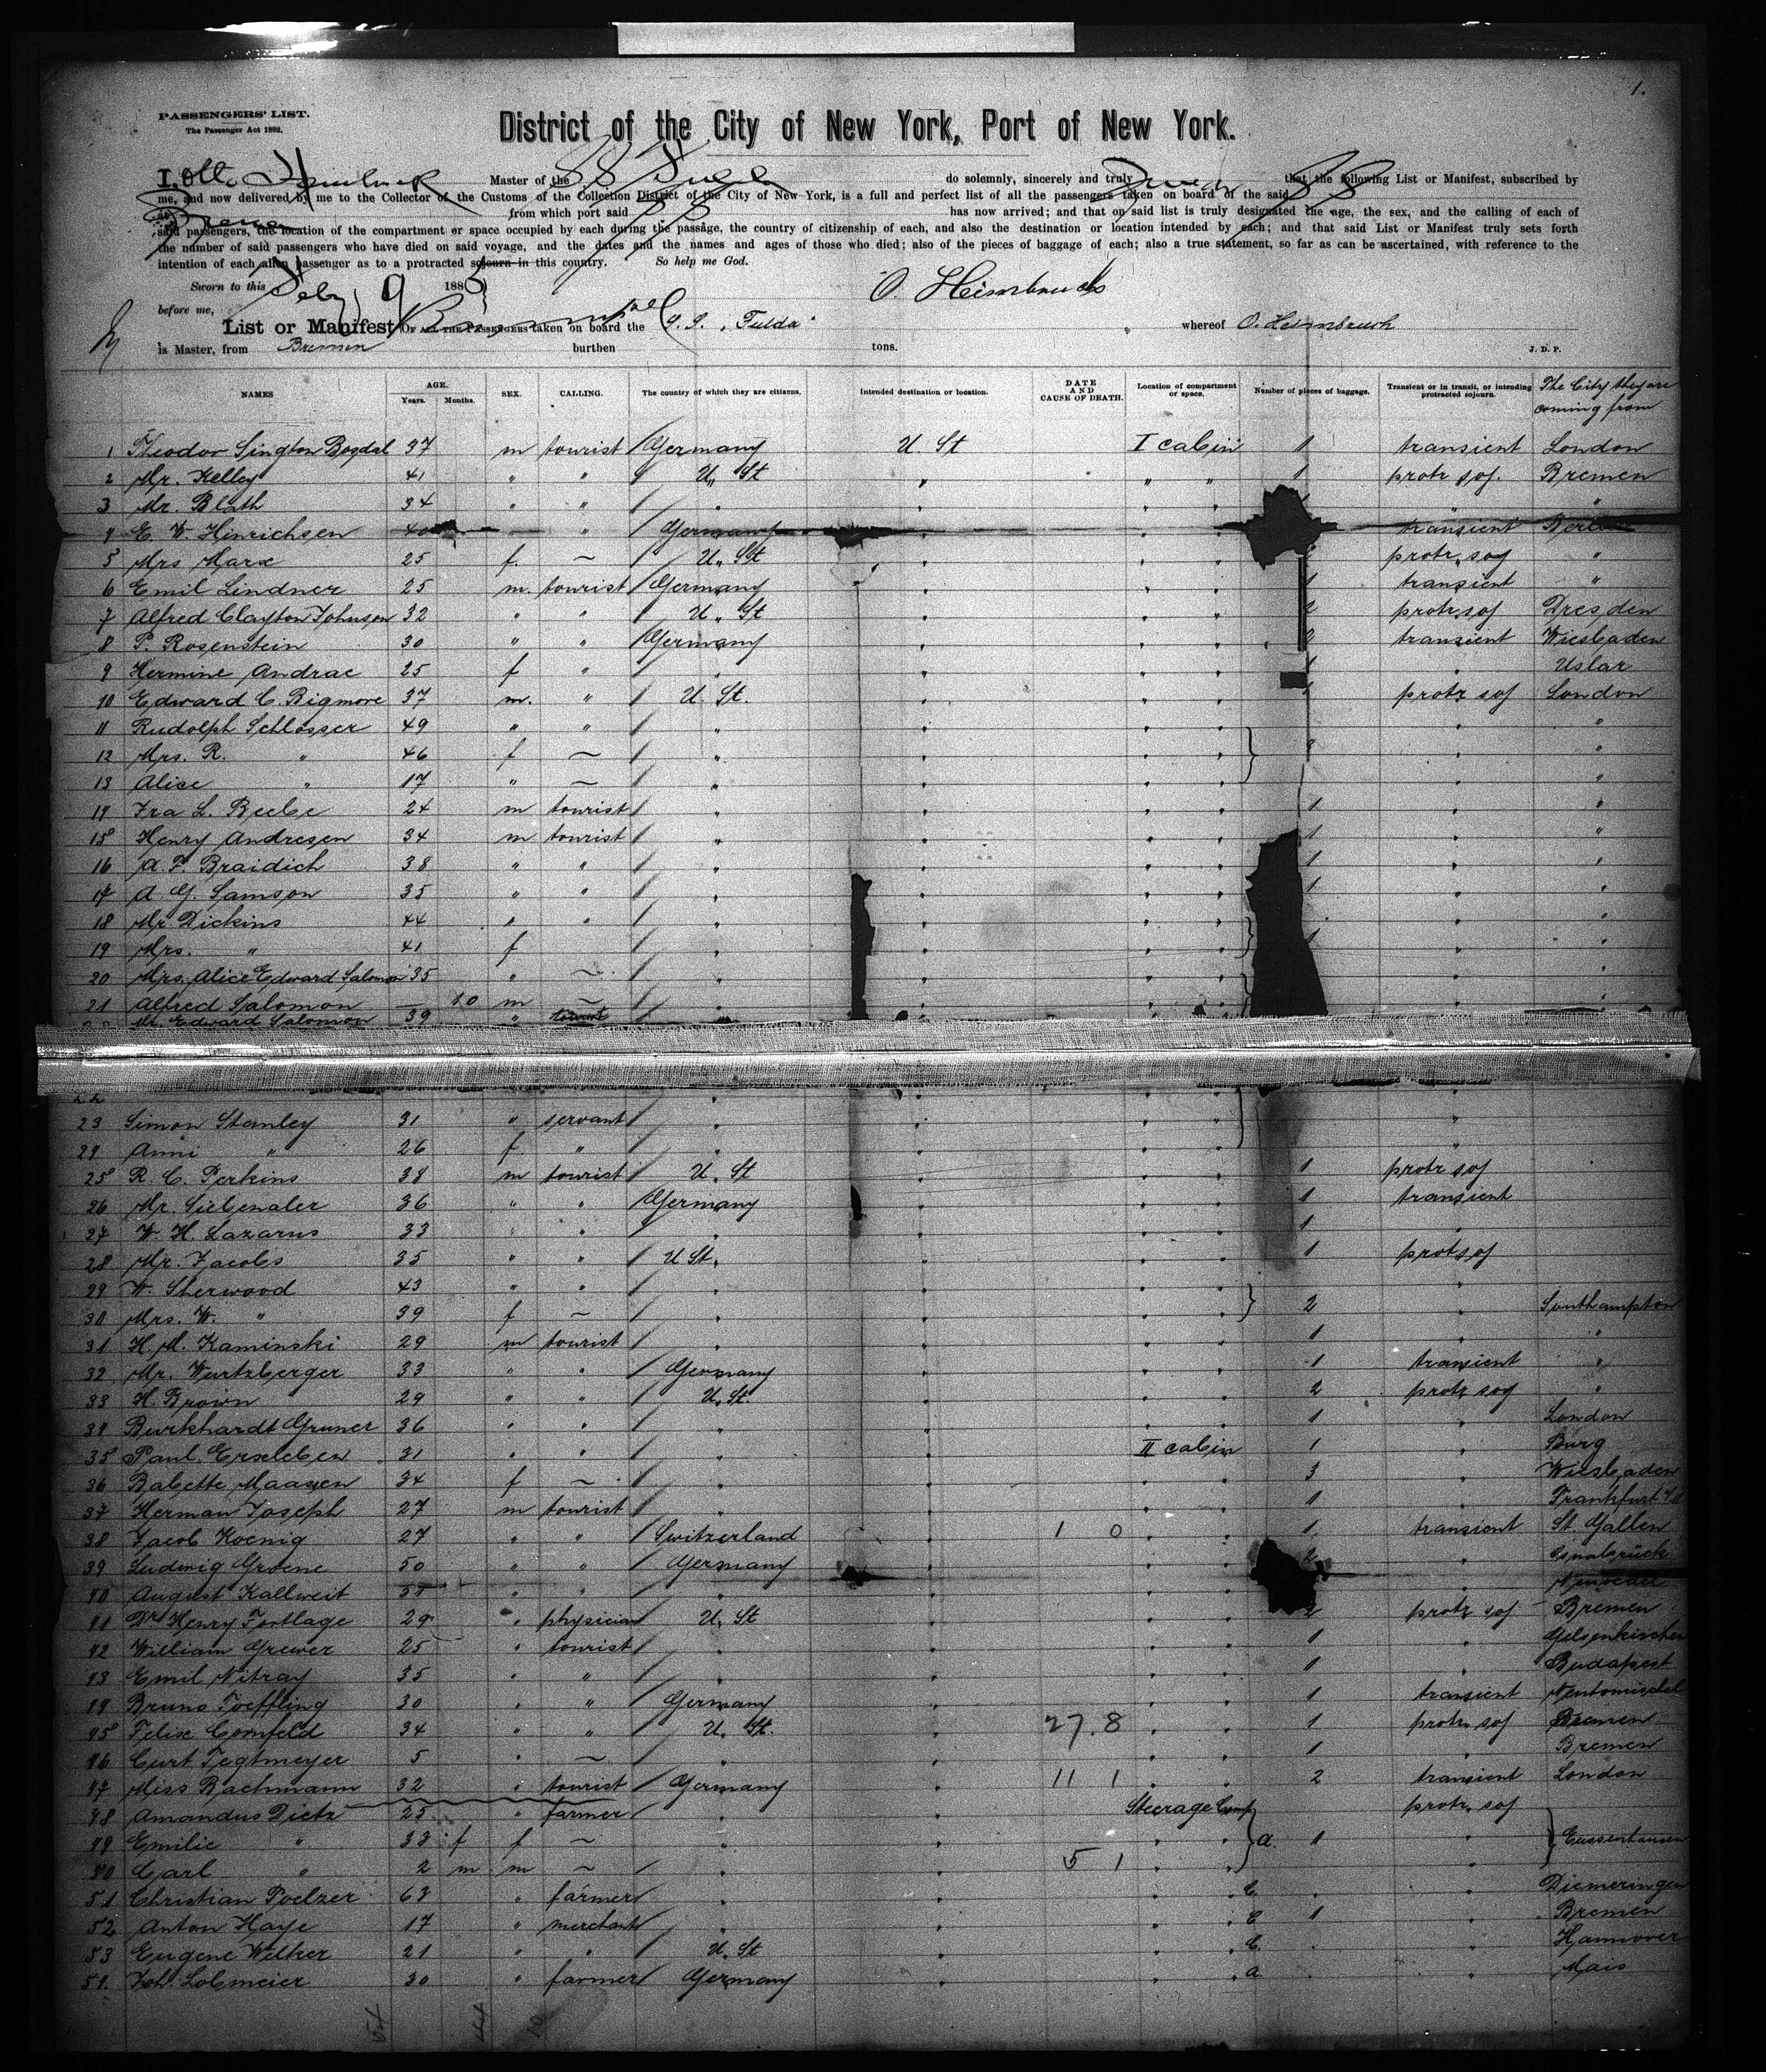 1.
PASSENGERS' LIST.
The Passenger Act 1882.
District of the City of New York, Port of New York.
I, Otto Heimbruch Master of the SS Fulda do solemnly, sincerely and truly swear that the following List or Manifest, subscribed by
me, and now delivered by me to the Collector of the Customs of the Collection District of the City of New York, is a full and perfect list of all the passengers taken on board of the said SS
at Bremen from which port said SS has now arrived; and that on said list is truly designated the age, the sex, and the calling of each of
said passengers, the location of the compartment or space occupied by each during the passage, the country of citizenship of each, and also the destination or location intended by each; and that said List or Manifest truly sets forth
the number of said passengers who have died on said voyage, and the dates and the names and ages of those who died; also of the pieces of baggage of each; also a true statement, so far as can be ascertained, with reference to the
intention of each alien passenger as to a protracted sojourn in this country. So help me God.
Sworn to this Feby 9 1885
O. Heimbruch
before me,
List or Manifest OF ALL THE PASSENGERS taken on board the S. S. "Fulda" whereof O. Heimbruch
is Master, from Bremen burthen tons. J. D. P.
NAMES AGE. Years. Months. SEX. CALLING. The country of which they are citizens. Intended destination or location. DATE AND CAUSE OF DEATH. Location of compartment or space. Number of pieces of baggage. Transient or in transit, or intending protracted sojourn. The City they are coming from
1 Theodor Sington Bogdal 37 m tourist Germany U. St I cabin 1 transient London
2 Mr. Kelley 41 " " U. St " " " 1 protr soj. Bremen
3 Mr. Blath 34 " " " " " " " "
4 E. W. Hinrichsen 40 " Germany " " " transient Berlin
5 Mrs Marx 25 f. ~ U. St " " " protr soj "
6 Emil Lindner 25 m. tourist Germany " " " 1 transient "
7 Alfred Clayton Johnson 32 " " U. St " " " 2 protr soj Dresden
8 P. Rosenstein 30 " " Germany " " " 2 transient Wiesbaden
9 Hermine Andrae 25 f " " " " " 1 " Uslar
10 Edward C. Bigmore 37 m. " U. St. " " " 1 protr soj London
11 Rudolph Schlosser 49 " " " " " " " "
12 Mrs. R. " 46 f ~ " " " " " "
13 Alice " 17 " ~ " " " " " "
14 Ira L. Beebe 24 m tourist " " " " 1 " "
15 Henry Andresen 34 m tourist " " " " 1 " "
16 A. F. Braidich 38 " " " " " " 1 " "
17 A. G. Samson 35 " " " " " " 1 " "
18 Mr Dickins 44 " " " " " " " "
19 Mrs. " 41 f " " " " 1 " "
20 Mrs. Alice Edward Salomon 35 " ~ " " " " " "
21 Alfred Salomon — 10 m ~ " " " " " "
Mr Edward Salomon 39 " tourist
22
23 Simon Stanley 31 " servant " " " " "
24 Anni " 26 f " " " " " "
25 R. C. Perkins 38 m tourist U. St " " " 1 protr soj
26 Mr. Siebenaler 36 " " Germany " " " 1 transient
27 W. H. Lazarus 33 " " " " " " 1 "
28 Mr. Jacobs 35 " " U St. " " " 1 protr soj
29 W. Sherwood 43 " " " " " " "
30 Mrs. W. " 39 f ~ " " " " 2 " Southampton
31 H. M. Kaminski 29 m tourist " " " " 1 " "
32 Mr. Wurtzberger 33 " " Germany " " " 1 transient "
33 H. Brown 29 " " U. St. " " " 2 protr soj "
34 Burkhardt Gruner 36 " " " " " " 1 " London
35 Paul Erxleben 31 " " " " II cabin 1 " Burg
36 Babette Maassen 34 f ~ " " " " 3 " Wiesbaden
37 Herman Joseph 27 m tourist " " " " 1 " Frankfurt
38 Jacob Koenig 27 " " Switzerland " 1 0 " " 1 transient St. Gallen
39 Ludwig Groene 50 " " Germany " " " 2 " Osnabrück
40 August Kallweit " " " " " " "
41 Dr Henry Fortlage 29 " physician U. St " " " 2 protr soj Bremen
42 William Grewer 25 " tourist " " " " 1 " Gelsenkirchen
43 Emil Nitray 35 " " " " " " 1 " Budapest
44 Bruno Toeffling 30 " " Germany " " " 1 transient Neutomischel
45 Felix Cornfeld 34 " " U. St. " 27.8 " " 1 protr soj Bremen
46 Curt Tegtmeyer 5 " ~ " " " " 1 " Bremen
47 Miss Bachmann 32 " tourist Germany " 11 1 " " 2 transient London
48 Amandus Dietz 25 " farmer " " Steerage Comp protr. soj
49 Emilie " 33 f f ~ " " " " a. 1 "
50 Carl " 2 m m ~ " " 5 1 " " "
51 Christian Poelzer 63 " farmer " " " " C. " " Diemeringen
52 Anton Haye 17 " merchant " " " " C 1 " Bremen
53 Eugene Wilker 21 " " U. St " " " C. " " Hannover
54. Joh. Lobmeier 30 " farmer Germany " " " a " " Mais
54 44 10